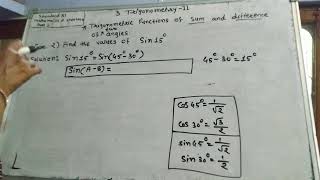 Standard XI
3 Trigonometry-II
* Trigonometric functions of Sum and difference
of angles
2) Find the values of Sin15°
Solution: Sin15° = Sin(45°-30°)
45°-30°=15°
Sin(A-B)=
cos 45° = 1/√2
cos 30° = √3/2
sin 45° = 1/√2
sin 30° = 1/2